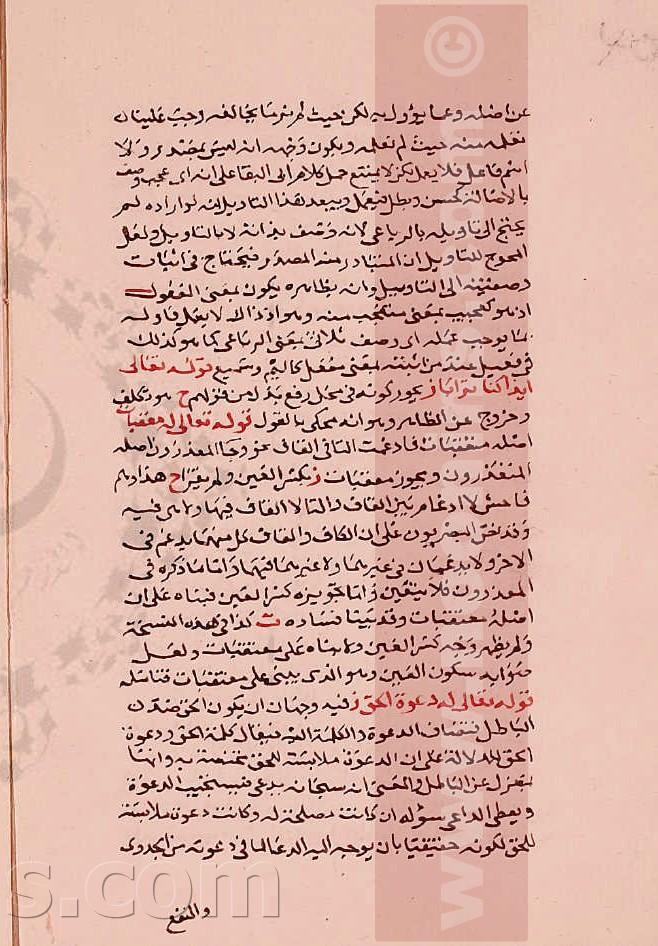 عن اصله وعما يؤول به لكن حيث لم نر ما يخالفه وجب علينا ان
نعلمه منه حيث لم نعلمه ويكون وجهه انه ليس بمصدر ولا
اسم فاعل فلا يعمل لكن لا يمنع حمل كلامه الى البقا على انه اى عجب وصف
بالاصالة كحسن وبطل فيعمل ويبعد هذا التاويل انه لو اراده لم
يحتج الى تاويله بالرباعى لانه وصف بذاته لا بالتاويل ولعل
المحوج للتاويل ان المتبادر منه المصدر فيحتاج فى اثبات
وصفيته الى التاويل وانه بظاهره يكون بمعنى المفعول
اذ هو كعجيب بمعنى متعجب منه وهو اذ ذاك لا يعمل فاوله
بما يوجب عمله اى وصف ثلاثى بمعنى الرباعى كما هو كذلك
فى فعيل عند من اثبته بمعنى مفعل كاليم وسميع قوله تعالى
ايذا كنا ترابا ز يجوز كونه فى محل رفع بدل من قولهم ح هو تكلف
وخروج عن الظاهر وهو انه محكى بالقول قوله تعالى له معقبات
اصله معتقبات فادغمت التا فى القاف نحو وجا المعذرون اصله
المعتذرون ويجوز معقبات ز بكسر العين ولم يقرا ح هذا وهم
فاحش لا ادغام بين القاف والتا لا القاف فيها ولا هى فيه
وقد نص البصريون على ان الكاف والقاف كل منهما يدغم فى
الاخر ولا يدغمان فى غيرهما ولا غيرهما فيهما واما ما ذكره فى
المعذرون فلا يتعين واما تجويزه كسر العين فبناه على ان
اصله معتقبات وقد بينا فساده ت كذا فى هذه النسخة
ولم يظهر وجه كسر العين ولا بناه على معتقبات ولعل
صوابه سكون العين وهو الذى يبنى على معتقبات فتامله
قوله تعالى له دعوة الحق ز فيه وجهان ان يكون الحق ضد
الباطل فتضاف الدعوة والكلمة اليه فيقال كلمة الحق ودعوة
الحق للدلالة على ان الدعوة ملابسة للحق مختصة به وانها
بمعزل عن الباطل فى المعنى انه سبحانه يدعى فيستجيب الدعوة
ويعطى الداعى سؤله ان كانت مصلحة له وكانت دعوة ملابسة
للحق لكونه حقيقيا بان يوجه اليه الدعا لما فى دعوته من الجدوى
والنفع